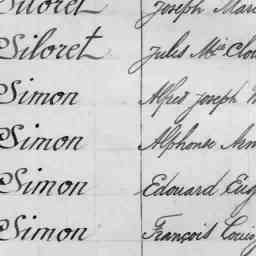 Siloret Joseph Mari
Siloret Jules Mie Clo
Simon Alfred Joseph
Simon Alphonse Arm
Simon Edouard Eug
Simon François Louis